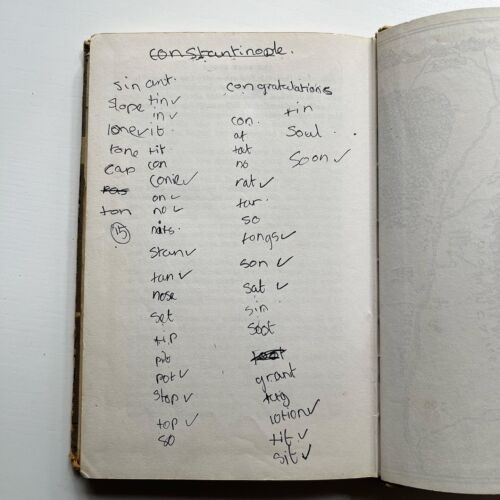 constantinople.
sin
slope
lone✓
tone
cap
ton
15
ant.
tin✓
in✓
it
tit
con
conie✓
on✓
no✓
nits.
stan✓
tan✓
nose
set
tip
pit
pot✓
stop✓
top✓
so
congratulations
con.
at
tat
no
rat✓
tar.
so
tongs✓
son✓
sat✓
sin
soot
grant
tug
lotion✓
tit✓
sit✓
tin
soul.
soon✓